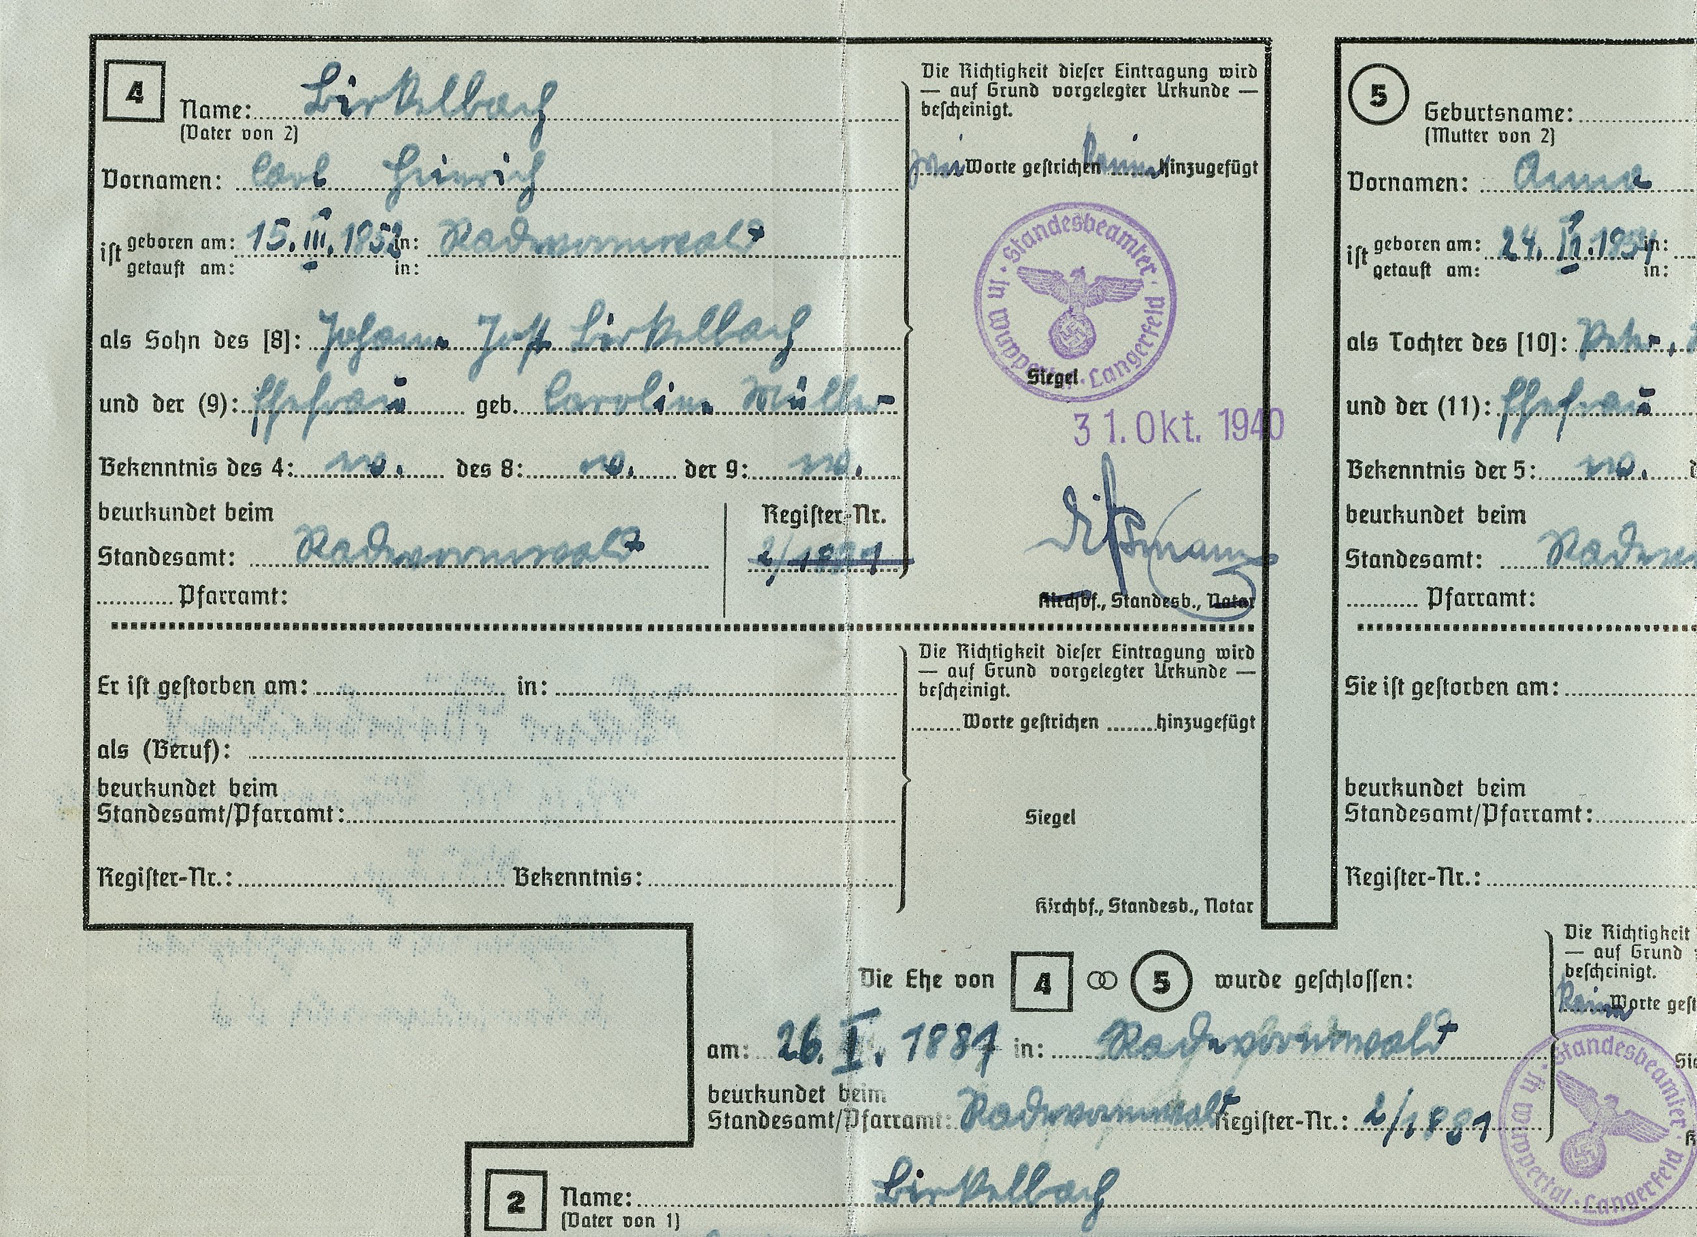 4
Name: Birkelbach
(Vater von 2)
Vornamen: Carl Heinrich
ist geboren am: 15. III. 1852 in: Radevormwald
getauft am: in:
als Sohn des [8]: Johann Jost Birkelbach
und der (9): Ehefrau geb. Caroline Müller
Bekenntnis des 4: ev. des 8: ev. der 9: ev.
beurkundet beim
Standesamt: Radevormwald
Register-Nr.
2/1881
Pfarramt:
Die Richtigkeit dieser Eintragung wird
— auf Grund vorgelegter Urkunde —
bescheinigt.
zwei Worte gestrichen keine hinzugefügt
Standesbeamter · in Wuppertal-Langerfeld
Siegel
31. Okt. 1940
Kirchbf., Standesb., Notar
Er ist gestorben am: in:
als (Beruf):
beurkundet beim
Standesamt/Pfarramt:
Register-Nr.: Bekenntnis:
Die Richtigkeit dieser Eintragung wird
— auf Grund vorgelegter Urkunde —
bescheinigt.
Worte gestrichen hinzugefügt
Siegel
Kirchbf., Standesb., Notar
5
Geburtsname:
(Mutter von 2)
Vornamen: Anna
ist geboren am: 24. 1854 in:
getauft am: in:
als Tochter des [10]: Peter
und der (11): Ehefrau
Bekenntnis der 5: ev.
beurkundet beim
Standesamt:
Pfarramt:
Sie ist gestorben am:
beurkundet beim
Standesamt/Pfarramt:
Register-Nr.:
Die Ehe von 4 ⚭ 5 wurde geschlossen:
am: 26. I. 1881 in: Radevormwald
beurkundet beim
Standesamt/Pfarramt: Radevormwald Register-Nr.: 2/1881
Die Richtigkeit
— auf Grund
bescheinigt.
Keine Worte gest
Standesbeamter · in Wuppertal-Langerfeld
2
Name: Birkelbach
(Vater von 1)